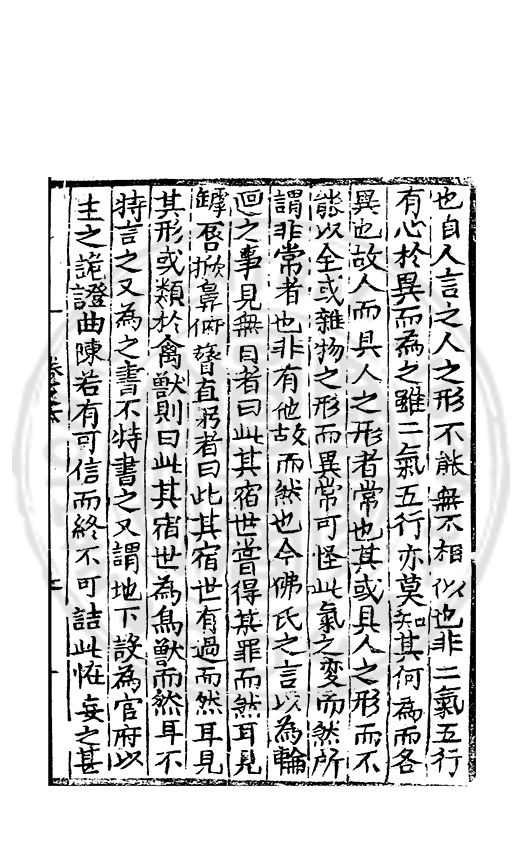 也自人言之人之形不能無不相似也非二氣五行
有心於異而為之雖二氣五行亦莫知其何為而各
異也故人而具人之形者常也其或具人之形而不
能以全或雜物之形而異常可怪此氣之變而然所
謂非常者也非有他故而然也今佛氏之言以為輪
迴之事見無目者曰此其宿世嘗得某罪而然耳見
罅唇掀鼻俯瞽直躬者曰此其宿世有過而然耳見
其形或類於禽獸則曰此其宿世為鳥獸而然耳不
特言之又為之書不特書之又謂地下設為官府以
主之詭證曲陳若有可信而終不可詰此怪妄之甚